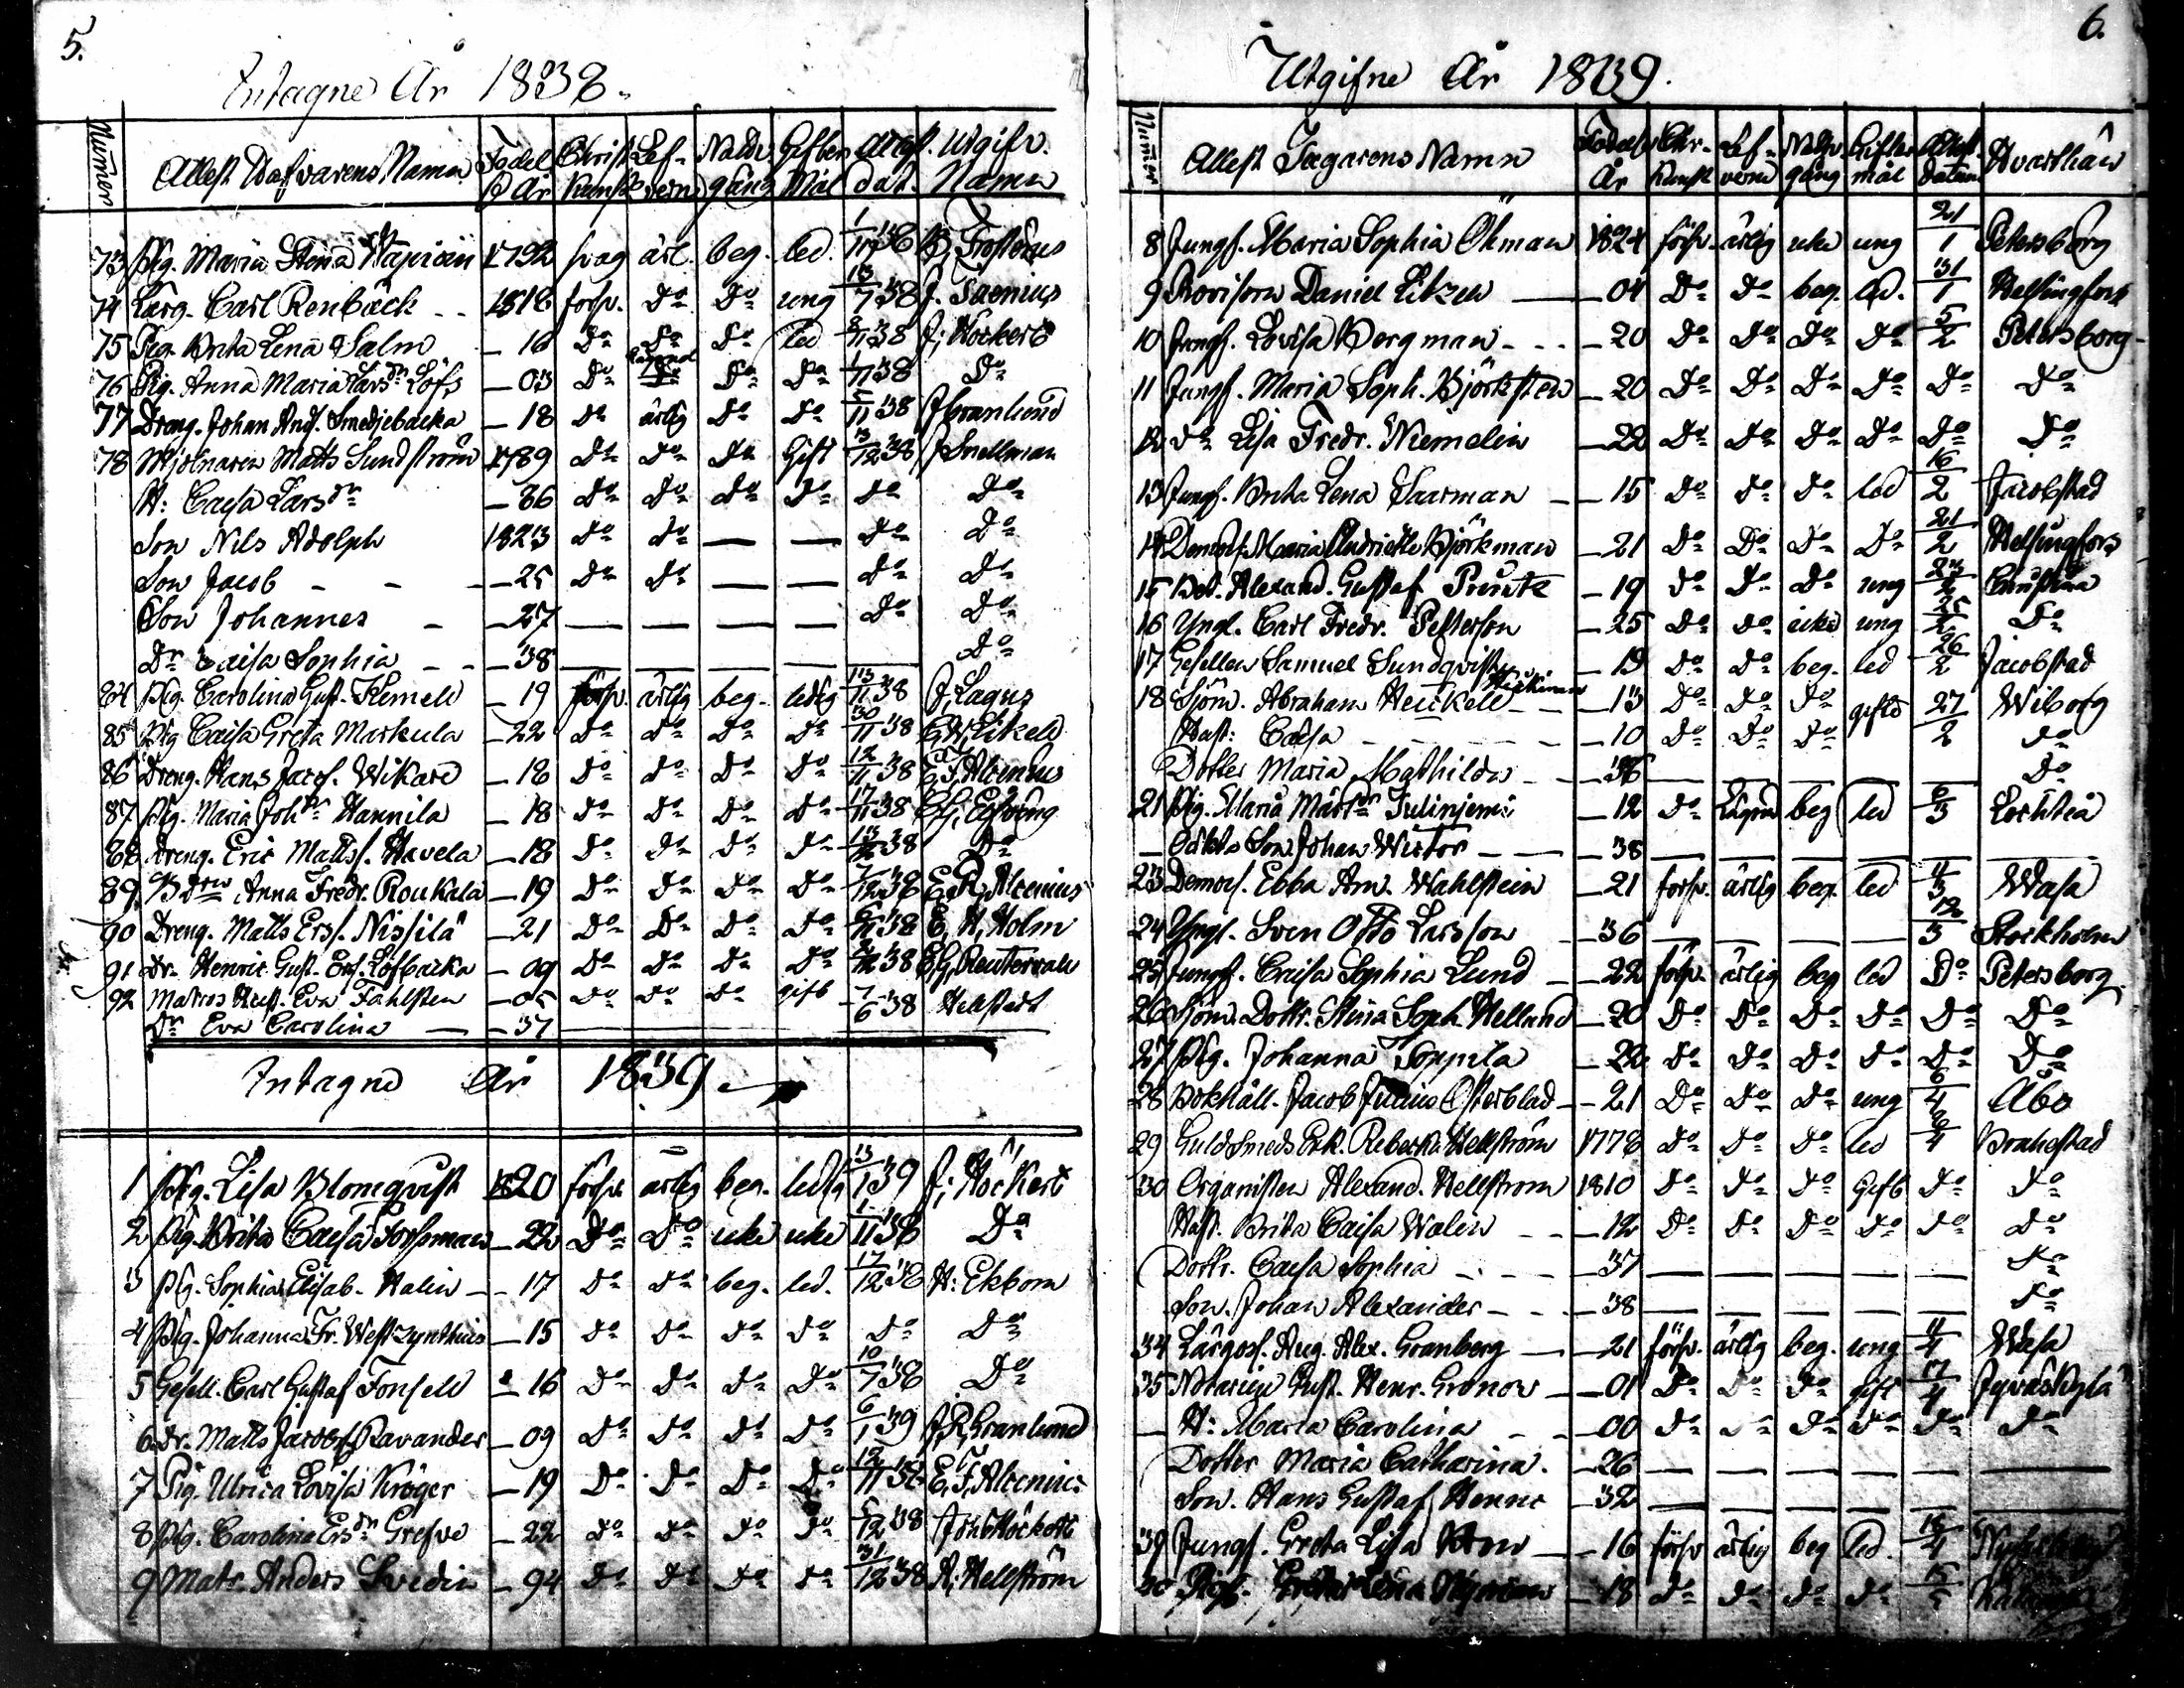 5.
Intagne År 1838.
Numer Attest Hafvarens Namn Födelse År Christ. Kunsk. Lefverne Nattv. gång Giftermål Attest. dat. Utgifv. Namn
73 Pig. Maria Stena 1792 svag ärl. beg. led. 1/11 38 Frosterus
74 Lärg. Carl Renbäck - - 1818 försv. Do Do ung 13/7 38 J. Faenius
75 Pig. Brita Lena Salm - 16 Do Do Do led 2/11 38 J. Höckert
76 Pig. Anna Maria Larsdr Löfs - 03 Do Do Do Do 1/11 38 Do
77 Dreng. Johan And. Smedjebacka - 18 Do ärlig Do Do 5/11 38 J Granlund
78 Mjölnaren Matts Sundström 1789 Do Do Do Gift 13/12 38 J Snellman
H: Caisa Larsdr - 86 Do Do Do Do Do Do
Son Nils Adolph 1823 Do Do — — Do Do
Son Jacob - - - 25 Do Do — — Do Do
Son Johannes - - 27 — — — — Do Do
Dr Caisa Sophia - - - 38 — — — — — Do
84 Pig. Carolina Gust. Kemell - 19 försv. ärlig beg. ledig 13/11 38 J. Lagus
85 Pig Caisa Greta Markula - 22 Do Do Do Do 30/11 38 Litzell
86 Dreng. Hans Jacs. Wikare - 18 Do Do Do Do 12/11 38 E. F. Alcenius
87 Pig. Maria Johdr Hannila - 18 Do Do Do Do 17/11 38 Elfving
88 Dreng. Eric Mattss. Havela - 18 Do Do Do Do 38 Do
89. Anna Fredr. Roukala - 19 Do Do Do Do 7/12 38 E. F. Alcenius
90 Dreng. Matts Erss. Nissilä - 21 Do Do Do Do 38 E. H. Holm
91 Dr. Henric Gust. Ers. Löfbacka - 09 Do Do Do Do 38 E. G. Reutervall
92 Matros Hust. Eva Fahlsten - 05 Do Do Do gift 7/6 38 Hellstedt
Dr Eva Carolina - 37
Intagne År 1839
1 Pig. Lisa Blomqvist 1820 försv. ärlig beg. ledig 13/1 39 J. Höckert
2 Pig. Brita Caisa Forsman - 22 Do Do icke icke 1/11 38 Do
3 Pig. Sophia Elisab. Halin - 17 Do Do beg. led. 17/12 38 H. Ekbom
4 Pig. Johanna Fr. Westzynthius - 15 Do Do Do Do Do Do
5 Gesell. Carl Gustaf Fonsell - 16 Do Do Do Do 10/7 38 Do
6 Dr. Matts Jacobs. Ravander - 09 Do Do Do Do 6/1 39 J. R. Granlund
7 Pig. Ulrica Lovisa Kröger - 19 Do Do Do Do 12/11 38 E. F. Alcenius
8 Pig. Carolina Ersdr Grefve - 22 Do Do Do Do 5/12 38 Joh. Höckert
9 Matr. Anders Svedin - 94 Do Do Do Do 31/12 38 A. Hellström
6.
Utgifne År 1839.
Numer Attest Tagarens Namn Födelse År Chr. Kunsk. Lefverne Nattv. gång Giftermål Attest. Datum Hvarthän
8 Jungf. Maria Sophia Öhman 1824 försv. ärlig icke ung 21/1 Petersborg
9 Provisorn Daniel Litzen — 04 Do Do beg. led. 31/1 Helsingfors
10 Jungf. Lovisa Bergman - - - 20 Do Do Do Do 5/2 Petersborg
11 Jungf. Maria Soph. Björksten - 20 Do Do Do Do Do Do
12 Do Lisa Fredr. Niemelin - 22 Do Do Do Do Do Do
13 Jungf. Brita Lena Saarman - 15 Do Do Do led 16/2 Jacobstad
14 Demois. Maria Björkman - 21 Do Do Do Do 21/2 Helsingfors
15 Bet. Alexand. Gustaf - 19 Do Do Do ung 23/2 Christina
16 Yngl. Carl Fredr. Petterson - 25 Do Do icke ung 25/2 Do
17 Gesellen Samuel Sundqvist - 19 Do Do beg. led 26/2 Jacobstad
18 Sjöm. Abraham Heickell Heickman - 13 Do Do Do gifta 27/2 Wiborg
Hust: Caisa - 10 Do Do Do Do
Dotter Maria Mathilda - 36 — — — — — Do
21 Pig. Maria Mattsdr Tulinjemi - 12 Do Lägrad beg led 6/3 Lochteå
Oäkta Son Johan Wictor - 38 — — — — — —
23 Demois. Ebba Am. Wahlstein - 21 försv. ärlig beg. led 11/3 Wasa
24 Yngl. Sven Otto Larsson - 36 — — — — 12/3 Stockholm
25 Jungf. Caisa Sophia Lund - 22 försv. ärlig beg led Do Petersborg
26 Sjöm. Dottr. Stina Soph. Helland - 20 Do Do Do Do Do Do
27 Pig. Johanna Soppila - 22 Do Do Do Do Do Do
28 Bokhåll. Jacob Julius Österblad - 21 Do Do Do ung 6/4 Åbo
29 Guldsmeds Enk. Rebecka Hellström 1778 Do Do Do led 9/4 Brahestad
30 Organisten Alexand. Hellström 1810 Do Do Do Gift Do Do
Hust. Brita Caisa Walin - 12 Do Do Do Do Do Do
Dottr. Caisa Sophia - 37 — — — — — Do
Son. Johan Alexander - 38 — — — — — Do
34 Lärgos. Aug. Alex. Granberg - 21 försv. ärlig beg. ung 11/4 Wasa
35 Notarien Gust. Henr. Gronow - 01 Do Do Do gift 17/4 Jyväskylä
H: Maria Carolina - 00 Do Do Do Do Do Do
Dotter Maria Catharina. - 26 — — — — — —
Son. Hans Gustaf Henric - 32 — — — — — —
39 Jungf. Greta Lisa - 16 försv ärlig beg led. 18/4
Lena - 18 Do Do Do Do